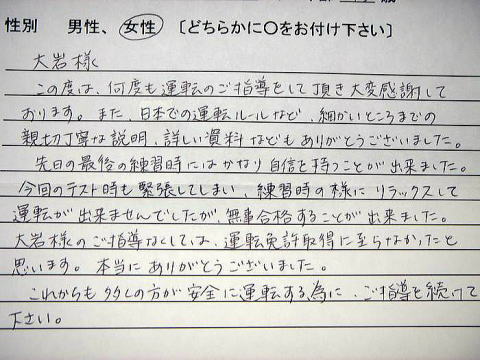 性別 男性、女性 〔どちらかに〇をお付け下さい〕
大岩様
この度は、何度も運転のご指導をして頂き大変感謝して
おります。また、日本での運転ルールなど、細かいところまでの
親切丁寧な説明、詳しい資料などもありがとうございました。
先日の最後の練習時にはかなり自信を持つことが出来ました。
今回のテスト時も緊張してしまい、練習時の様にリラックスして
運転が出来ませんでしたが、無事合格することが出来ました。
大岩様のご指導なくしては、運転免許取得に至らなかったと
思います。本当にありがとうございました。
これからも多くの方が安全に運転する為に、ご指導を続けて
下さい。